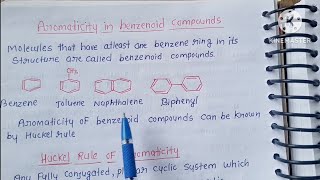 Aromaticity in benzenoid compounds
Molecules that have atleast one benzene ring in its
structure are called benzenoid compounds.
CH3
Benzene Toluene Naphthalene Biphenyl
Aromaticity of benzenoid compounds can be known
by Huckel rule
Huckel Rule of Aromaticity
Any fully conjugated, planar cyclic system which
KINEMASTER